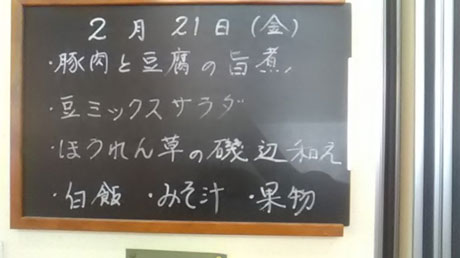 2月21日(金)
・豚肉と豆腐の旨煮
・豆ミックスサラダ
・ほうれん草の磯辺和え
・白飯 ・みそ汁 ・果物